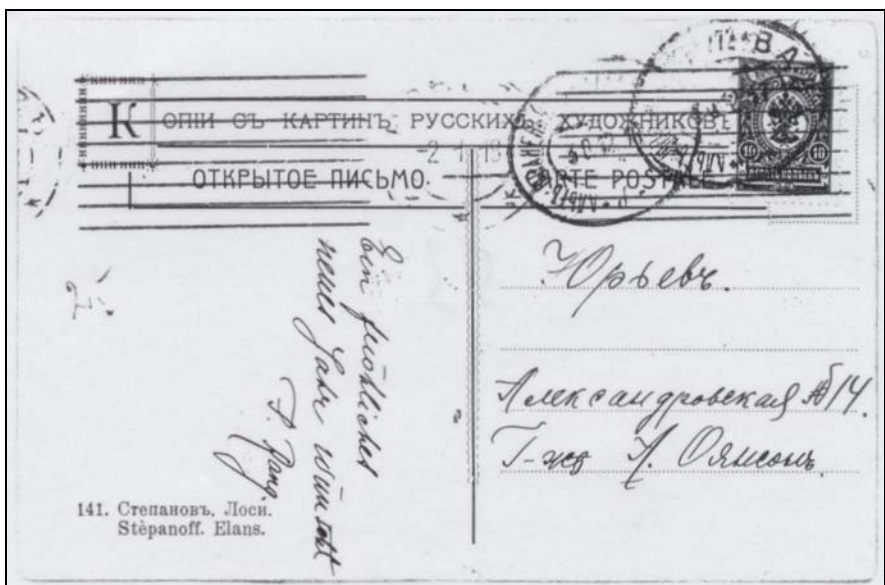 КОПІИ СЪ КАРТИНЪ РУССКИХЪ ХУДОЖНИКОВЪ
ОТКРЫТОЕ ПИСЬМО. CARTE POSTALE
10 10
Ein fröhliches
neues Jahr wünscht
P. Rang.
Юрьевъ.
Александровская № 14.
Г-же
141. Степановъ. Лоси.
Stèpanoff. Elans.